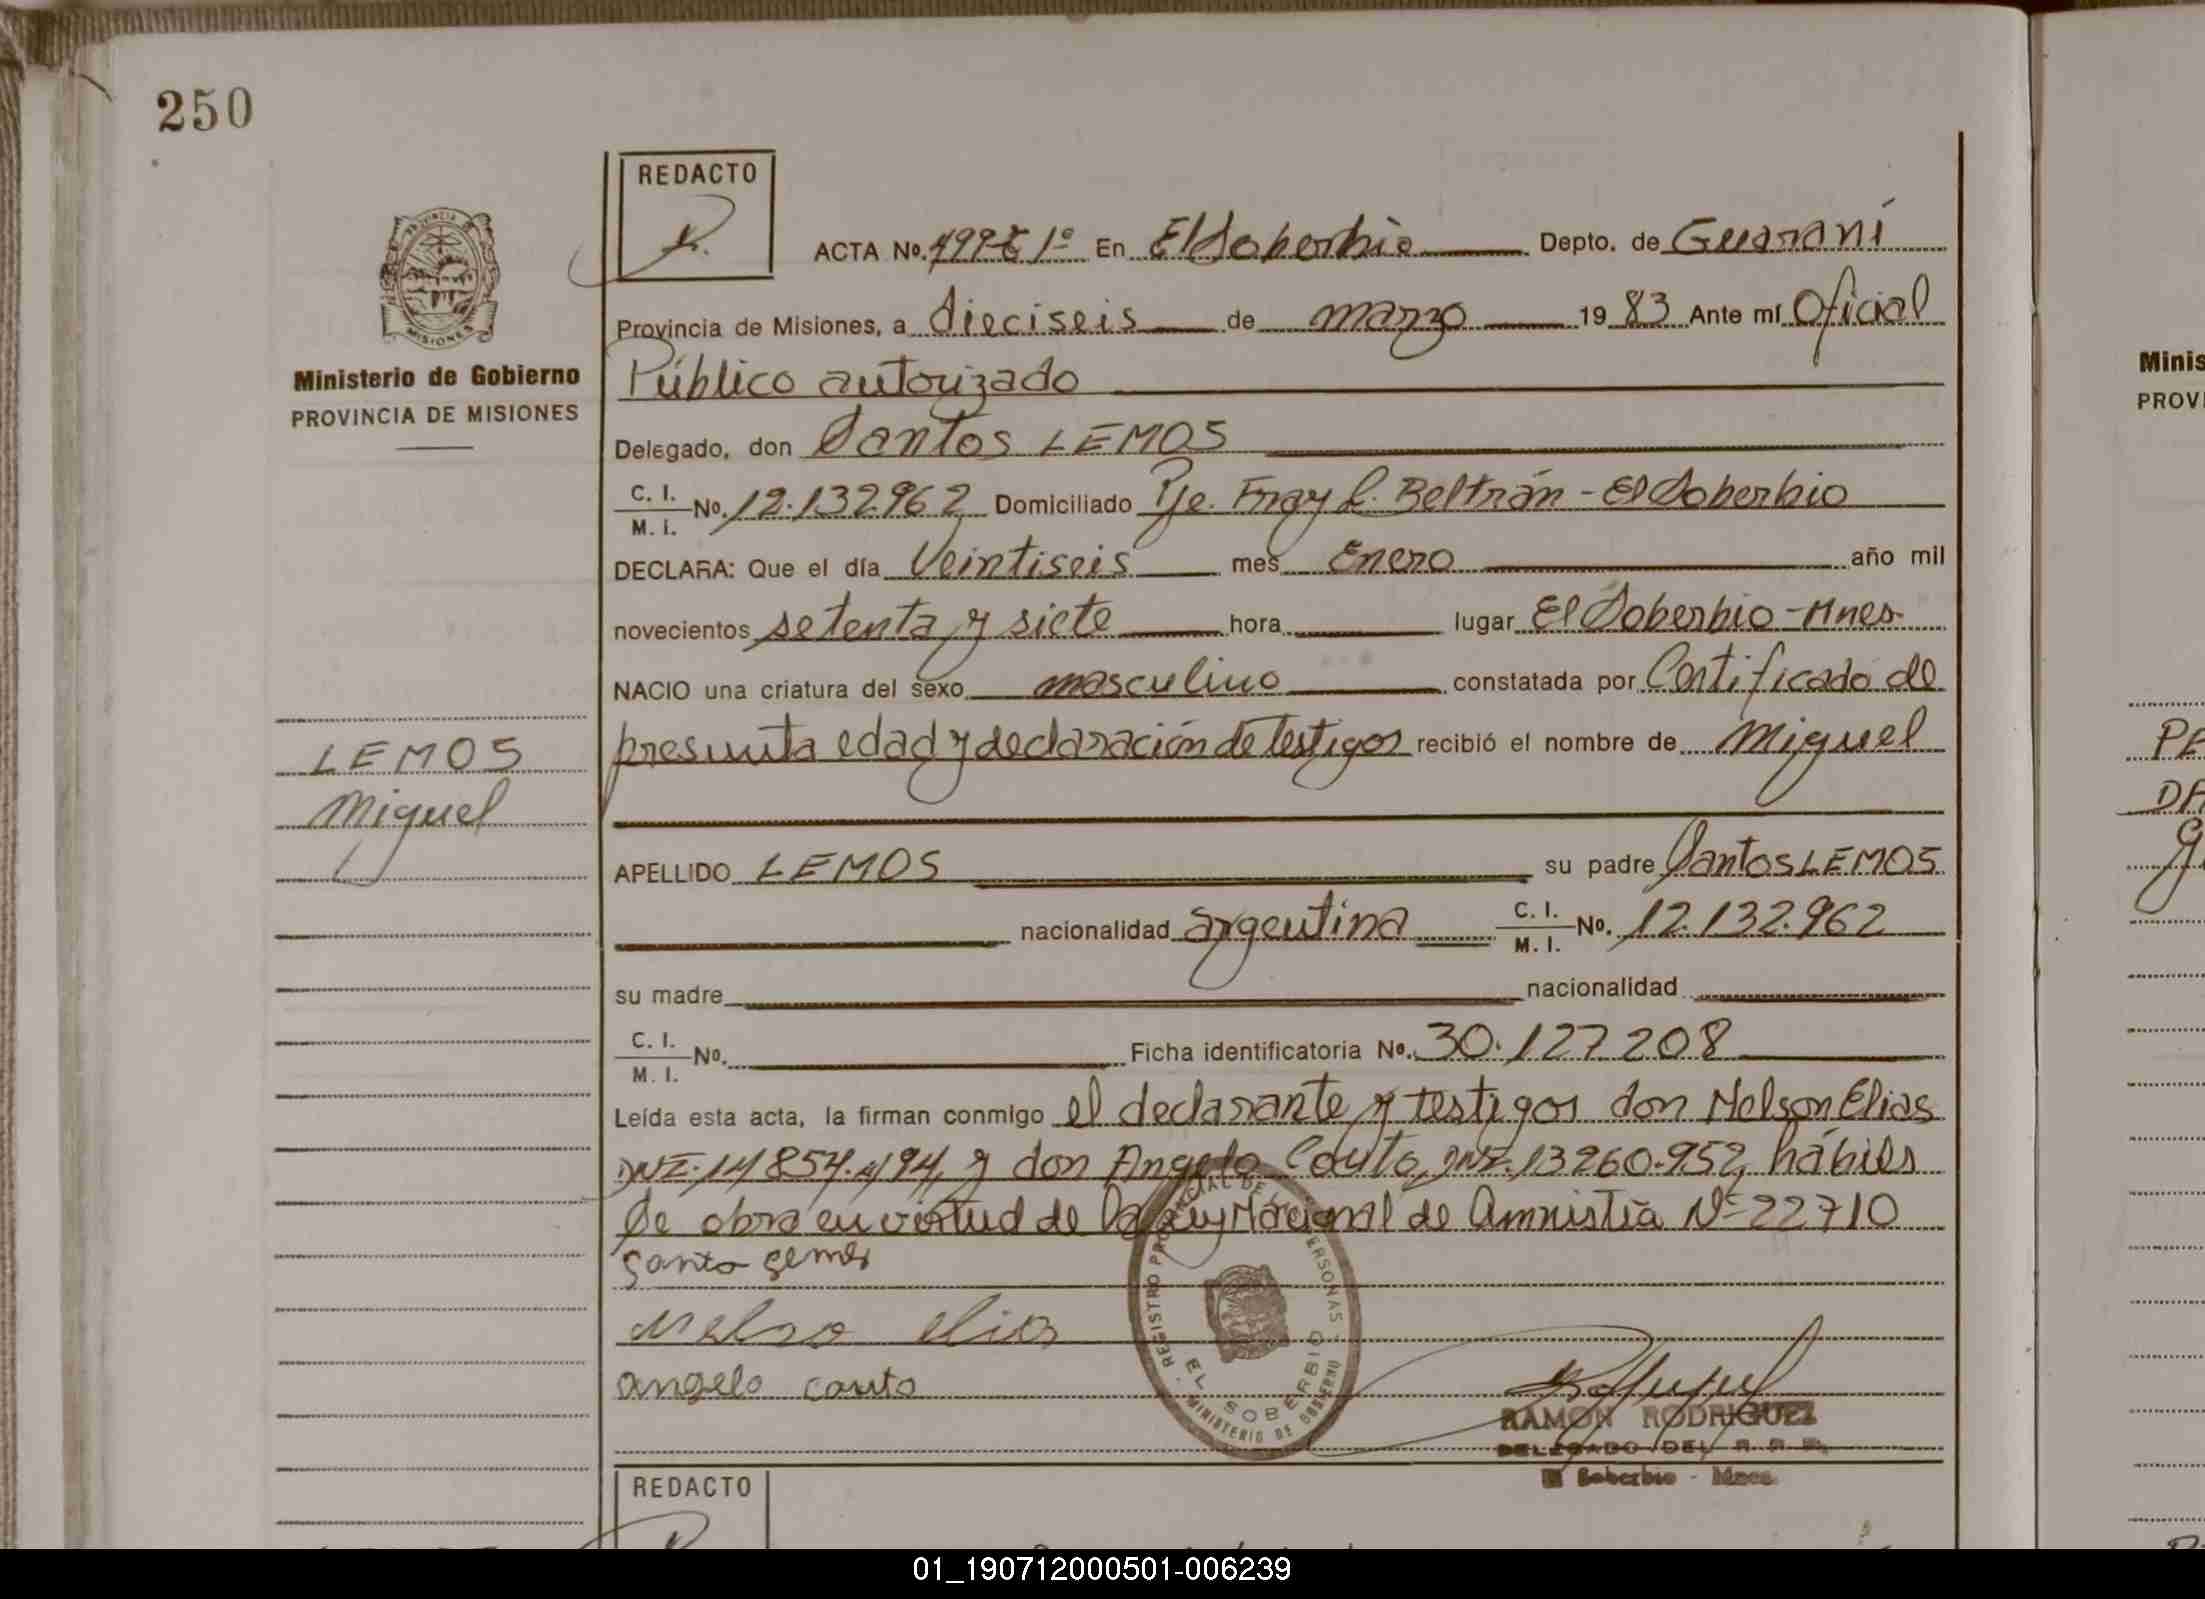 250
REDACTO
ACTA Nº. 499-T 1º En El Soberbio Depto. de Guaraní
Provincia de Misiones, a dieciseis de marzo 1983 Ante mí Oficial
Público autorizado
Delegado, don Santos LEMOS
C. I.
M. I. Nº. 12.132.962 Domiciliado Pje. Fray L. Beltrán - El Soberbio
DECLARA: Que el día Veintiseis mes Enero año mil
novecientos setenta y siete hora lugar El Soberbio - Mnes.
NACIO una criatura del sexo masculino constatada por Certificado de
presunta edad y declaración de testigos recibió el nombre de Miguel
APELLIDO LEMOS su padre Santos LEMOS
nacionalidad argentina C. I.
M. I. Nº. 12.132.962
su madre nacionalidad
C. I.
M. I. Nº. Ficha identificatoria Nº. 30.127.208
Leída esta acta, la firman conmigo el declarante y testigos don Nelson Elias
DNI. 14854.194, y don Angelo Couto, DNI. 13260.952, hábiles
Se obra en virtud de la Ley Nacional de Amnistía Nº 22710
Santo Lemos
Nelso elias
angelo couto
REGISTRO PROVINCIAL DE LAS PERSONAS
EL SOBERBIO
MINISTERIO DE GOBIERNO
RAMON RODRIGUEZ
DELEGADO DEL R. P. P.
El Soberbio - Mnes.
PROVINCIA DE
MISIONES
Ministerio de Gobierno
PROVINCIA DE MISIONES
LEMOS
Miguel
REDACTO
Minis
PROVI
PE
01_190712000501-006239